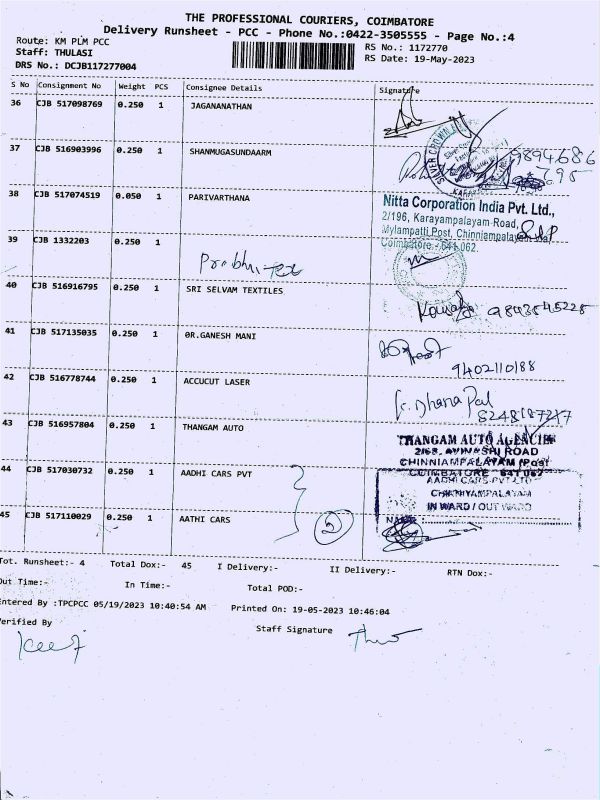 THE PROFESSIONAL COURIERS, COIMBATORE
Delivery Runsheet - PCC - Phone No.:0422-3505555 - Page No.:4
Route: KM PLM PCC
RS No.: 1172770
Staff: THULASI
RS Date: 19-May-2023
DRS No.: DCJB117277004
S No Consignment No Weight PCS Consignee Details Signature
36 CJB 517098769 0.250 1 JAGANANATHAN
37 CJB 516903996 0.250 1 SHANMUGASUNDAARM
9894686
795
38 CJB 517074519 0.050 1 PARIVARTHANA
Nitta Corporation India Pvt. Ltd.,
2/196, Karayampalayam Road,
Mylampatti Post, Chinniampalayam
Coimbatore - 641 062.
39 CJB 1332203 0.250 1
Prabhu Tex
40 CJB 516916795 0.250 1 SRI SELVAM TEXTILES
9843545225
41 CJB 517135035 0.250 1 0R.GANESH MANI
9402110188
42 CJB 516778744 0.250 1 ACCUCUT LASER
K. Dhana Pal
43 CJB 516957804 0.250 1 THANGAM AUTO
THANGAM AUTO AGENCIES
2/68, AVINASHI ROAD
CHINNIAMPALAYAM (Post
COIMBATORE - 641 062
44 CJB 517030732 0.250 1 AADHI CARS PVT
AADHI CARS PVT LTD
CHINNIYAMPALAYAM
IN WARD / OUT WARD
45 CJB 517110029 0.250 1 AATHI CARS
2
NAME
Tot. Runsheet:- 4 Total Dox:- 45 I Delivery:- II Delivery:- RTN Dox:-
Out Time:- In Time:- Total POD:-
Entered By :TPCPCC 05/19/2023 10:40:54 AM Printed On: 19-05-2023 10:46:04
Verified By
Staff Signature